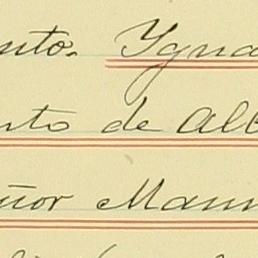 nto. Ygna
nto de Alb
ñor Manu